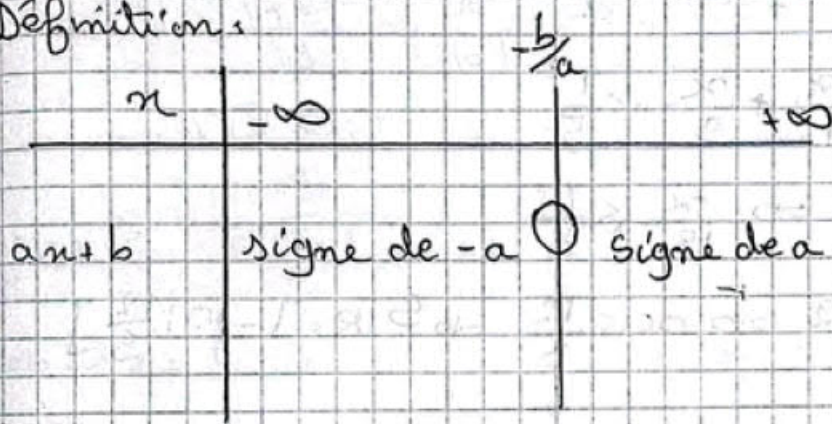 Définition :
-b/a
x -∞ +∞
ax+b signe de -a 0 signe de a